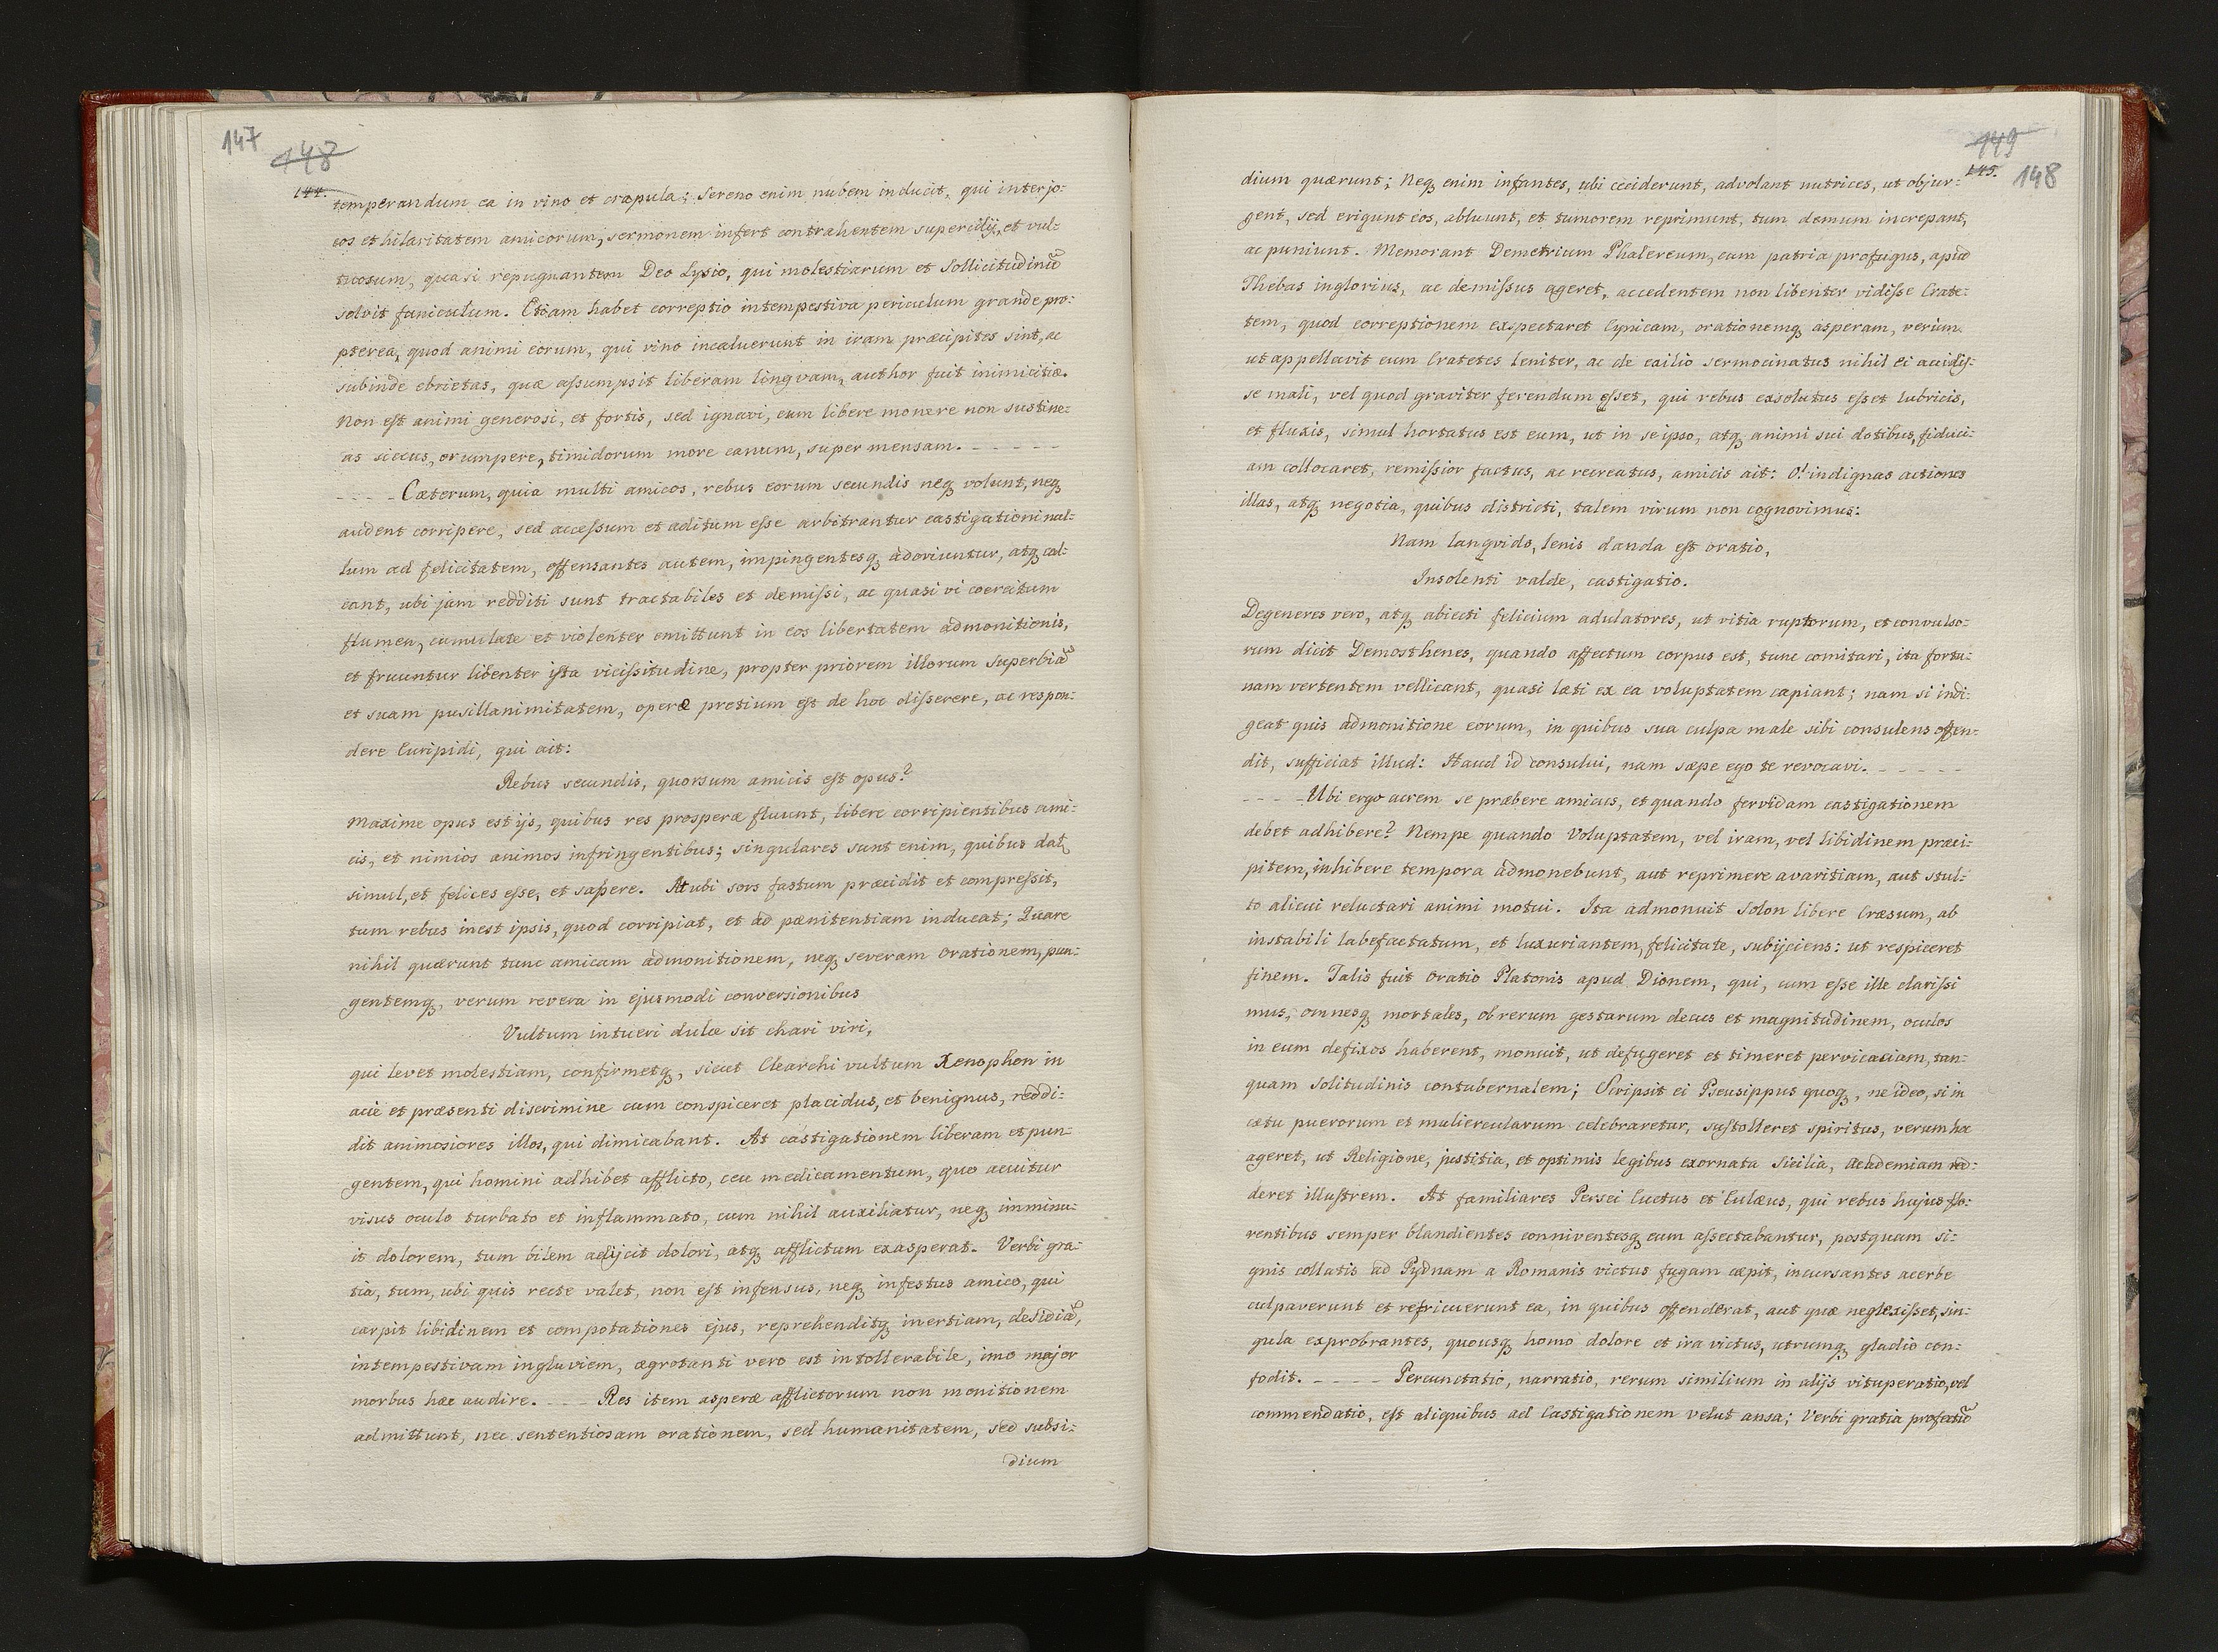 147
148
144.
temperandum ea in vino et crapula; Sereno enim nubem inducit, qui inter jo-
cos et hilaritatem amicorum, sermonem infert contrahentem supercilij, et vul-
tuosum, quasi repugnantem Deo Lysio, qui molestiarum et Sollicitudinū
solvit funiculum. Etiam habet correptio intempestiva periculum grande pro-
pterea, quod animi eorum, qui vino incaluerunt in iram præcipites sint, ac
subinde ebrietas, quæ assumpsit liberam lingvam, author fuit inimicitiæ.
Non est animi generosi, et fortis, sed ignavi, cum libere monere non sustine-
as siccus, orumpere, timidorum more canum, super mensam. - - - -
- - - - Cæterum, quia multi amicos, rebus eorum secundis neq volunt, neq
audent corripere, sed accessum et aditum esse arbitrantur castigationi nul-
lum ad felicitatem, offensantes autem, impingentesq adoriuntur, atq cal-
cant, ubi jam redditi sunt tractabiles et demissi, ac quasi vi coercitum
flumen, cumulate et violenter emittunt in eos libertatem admonitionis,
et fruuntur libenter ista vicissitudine, propter priorem illorum Superbiā
et suam pusillanimitatem, operæ pretium est de hoc disserere, ac respon-
dere Euripidi, qui ait:
Rebus secundis, quorsum amicis est opus?
Maxime opus est ijs, quibus res prosperæ fluunt, libere corripientibus ami-
cis, et nimios animos infringentibus; singulares sunt enim, quibus dat,
simul, et felices esse, et sapere. At ubi sors fastum præcidit et compressit,
tum rebus inest ipsis, quod corripiat, et ad pænitentiam inducat; Quare
nihil quærunt tunc amicam admonitionem, neq severam orationem, pun-
gentemq, verum revera in ejusmodi conversionibus
Vultum intueri dulce sit chari viri,
qui levet molestiam, confirmetq, sicut Clearchi vultum Xenophon in
acie et præsenti discrimine cum conspiceret placidus, et benignus, reddi-
dit animosiores illos, qui dimicabant. At castigationem liberam et pun-
gentem, qui homini adhibet afflicto, ceu medicamentum, quo acuitur
visus oculo turbato et inflammato, cum nihil auxiliatur, neq imminu-
it dolorem, tum bilem adijcit dolori, atq afflictum exasperat. Verbi gra-
tia, tum, ubi quis recte valet, non est infensus, neq infestus amico, qui
carpit libidinem et compotationes ejus, reprehenditq inertiam, desidiā,
intempestivam ingluviem, ægrotanti vero est intollerabile, imo major
morbus hæc audire. - - - Res item asperæ afflictorum non monitionem
admittunt, nec sententiosam orationem, sed humanitatem, sed subsi-
dium
149
145.
148
dium quærunt; Neq enim infantes, ubi ceciderunt, advolant nutrices, ut objur-
gent, sed erigunt eos, abluunt, et tumorem reprimunt, tum demum increpant,
ac puniunt. Memorant Demetrium Phalereum, cum patria profugus, apud
Thebas inglorius, ac demissus ageret, accedentem non libenter vidisse Crate-
tem, quod correptionem exspectaret Cynicam, orationemq asperam, verum
ut appellavit eum Cratetes leniter, ac de exilio sermocinatus nihil ei accidis-
se mali, vel quod graviter ferendum esset, qui rebus exsolutus esset lubricis,
et fluxis, simul hortatus est eum, ut in se ipso, atq animi sui dotibus, fiduci-
am collocaret, remissior factus, ac recreatus, amicis ait: O! indignas actiones
illas, atq negotia, quibus districti, talem virum non cognovimus:
Nam langvido, lenis danda est oratio,
Insolenti valde, castigatio.
Degeneres vero, atq abiecti felicium adulatores, ut vitia ruptorum, et convulso-
rum dicit Demosthenes, quando affectum corpus est, tunc comitari, ita fortu-
nam vertentem vellicant, quasi læti ex ea voluptatem capiant; nam si indi-
geat quis admonitione eorum, in quibus sua culpa male sibi consulens offen-
dit, sufficiat illud: Haud id consului, nam sæpe ego te revocavi. - - - - -
- - - - Ubi ergo acrem se præbere amicus, et quando fervidam castigationem
debet adhibere? Nempe quando Voluptatem, vel iram, vel libidinem præci-
pitem, inhibere tempora admonebunt, aut reprimere avaritiam, aut stul-
to alicui reluctari animi motui. Ita admonuit Solon libere Cræsum, ab
instabili labefactatum, et luxuriantem, felicitate, subijciens: ut respiceret
finem. Talis fuit Oratio Platonis apud Dionem, qui, cum esse ille clarissi
mus, omnesq mortales, ob rerum gestarum decus et magnitudinem, oculos
in eum defixos haberent, monuit, ut defugeret et timeret pervicaciam, tan-
quam Solitudinis contubernalem; Scripsit ei Pseusippus quoq, ne ideo, si in
cætu puerorum et muliercularum celebraretur, sustolleret spiritus, verum hæ
ageret, ut Religione, justitia, et optimis legibus exornata Sicilia, Academiam red-
deret illustrem. At familiares Persei Euctus et Eulæus, qui rebus hujus flo-
rentibus semper blandientes conniventesq eum assectabantur, postquam si-
gnis collatis ad Pydnam a Romanis victus fugam cæpit, incursantes acerbe
culpaverunt et refricuerunt ea, in quibus offenderat, aut quæ neglexisset, sin-
gula exprobrantes, quousq homo dolore et ira victus, utrumq gladio con-
fodit. - - - - Percunctatio, narratio, rerum similium in alijs vituperatio, vel
commendatio, est aliquibus ad Castigationem velut ansa; Verbi gratia profectū